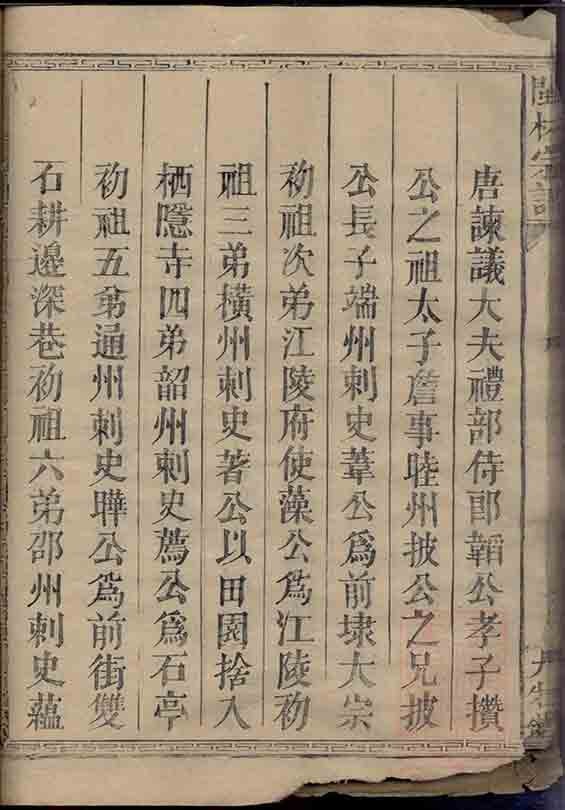 閩林宗譜
唐諫議大夫禮部侍郎韜公孝子攢
公之祖太子詹事睦州披公之兄披
公長子端州刺史葦公爲前埭大宗
初祖次弟江陵府使藻公爲江陵初
祖三弟橫州刺史著公以田園捨入
栖隱寺四弟韶州刺史薦公爲石亭
初祖五弟通州刺史曄公爲前街雙
石耕邊深巷初祖六弟邵州刺史蘊